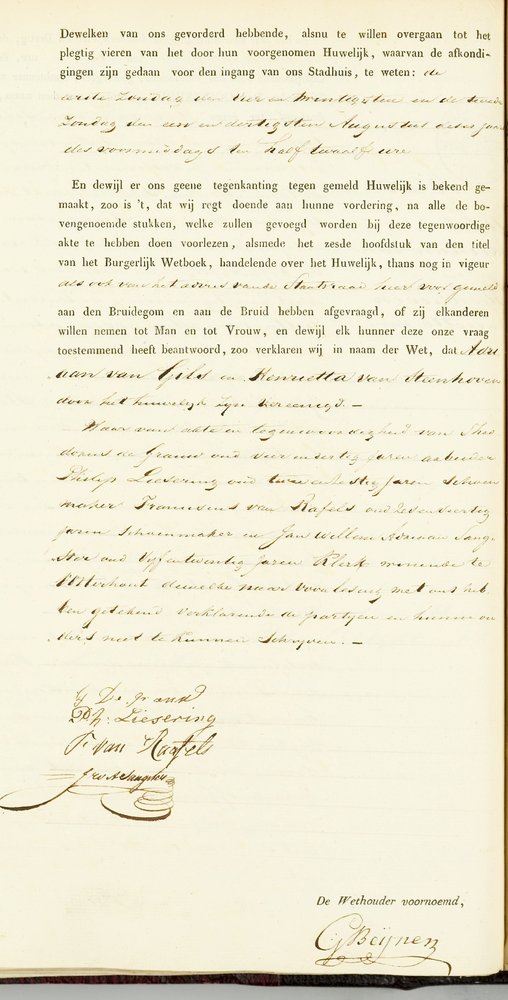 Dewelken van ons gevorderd hebbende, alsnu te willen overgaan tot het
plegtig vieren van het door hun voorgenomen Huwelijk, waarvan de afkondi-
gingen zijn gedaan voor den ingang van ons Stadhuis, te weten: de
eerste Zondag den vier en twintigsten en de tweede
Zondag den een en dertigsten Augustus dezes jaars
des voormiddags ten half twaalf ure
En dewijl er ons geene tegenkanting tegen gemeld Huwelijk is bekend ge-
maakt, zoo is 't, dat wij regt doende aan hunne vordering, na alle de bo-
vengenoemde stukken, welke zullen gevoegd worden bij deze tegenwoordige
akte te hebben doen voorlezen, alsmede het zesde hoofdstuk van den titel
van het Burgerlijk Wetboek, handelende over het Huwelijk, thans nog in vigeur
als ook van het advies van de Staatsraad hier voor gemeld
aan den Bruidegom en aan de Bruid hebben afgevraagd, of zij elkanderen
willen nemen tot Man en tot Vrouw, en dewijl elk hunner deze onze vraag
toestemmend heeft beantwoord, zoo verklaren wij in naam der Wet, dat Adri
aan van Gils en Henrietta van Steenhoven
door het huwelijk zyn vereenigd. —
Waar van acte in tegenwoordigheid van
de Grauw oud vier en jaren arbeider
Philip Liesering oud twee en jaren schoen
maker Franciscus van Rafels oud zeven en veertig
jaren schoenmaker en Jan Willem Adriaan Sang
ster oud vyf en twintig jaren klerk wonende te
Oosterhout dewelke naar voorlezing met ons heb
ben getekend verklarende de partyen en hunne ou
ders niet te kunnen schryven. —
De Grauw
Ph: Liesering
F. van Raffels
J W A Sangster
De Wethouder voornoemd,
Beijnen